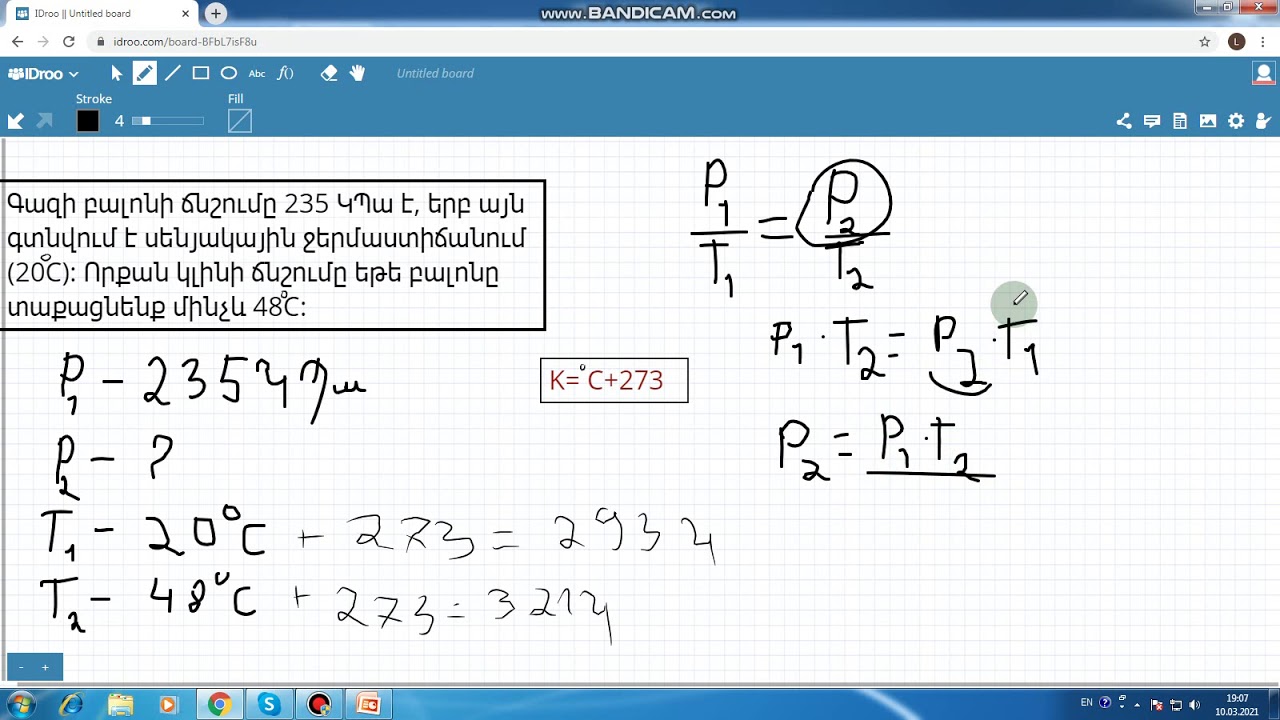 IDroo || Untitled board
www.BANDICAM.com
idroo.com/board-BFbL7isF8u
L
IDroo
Abc
f()
Untitled board
Stroke
Fill
4
Գազի բալոնի ճնշումը 235 ԿՊա է, երբ այն
գտնվում է սենյակային ջերմաստիճանում
(20°C)։ Որքան կլինի ճնշումը եթե բալոնը
տաքացնենք մինչև 48°C։
P₁/T₁ = P₂/T₂
P₁ · T₂ = P₂ · T₁
K=°C+273
P₂ = P₁ · T₂
P₁ – 235 կՊա
P₂ – ?
T₁ – 20°C + 273 = 293 կ
T₂ – 48°C + 273 = 321 կ
- +
EN
19:07
10.03.2021